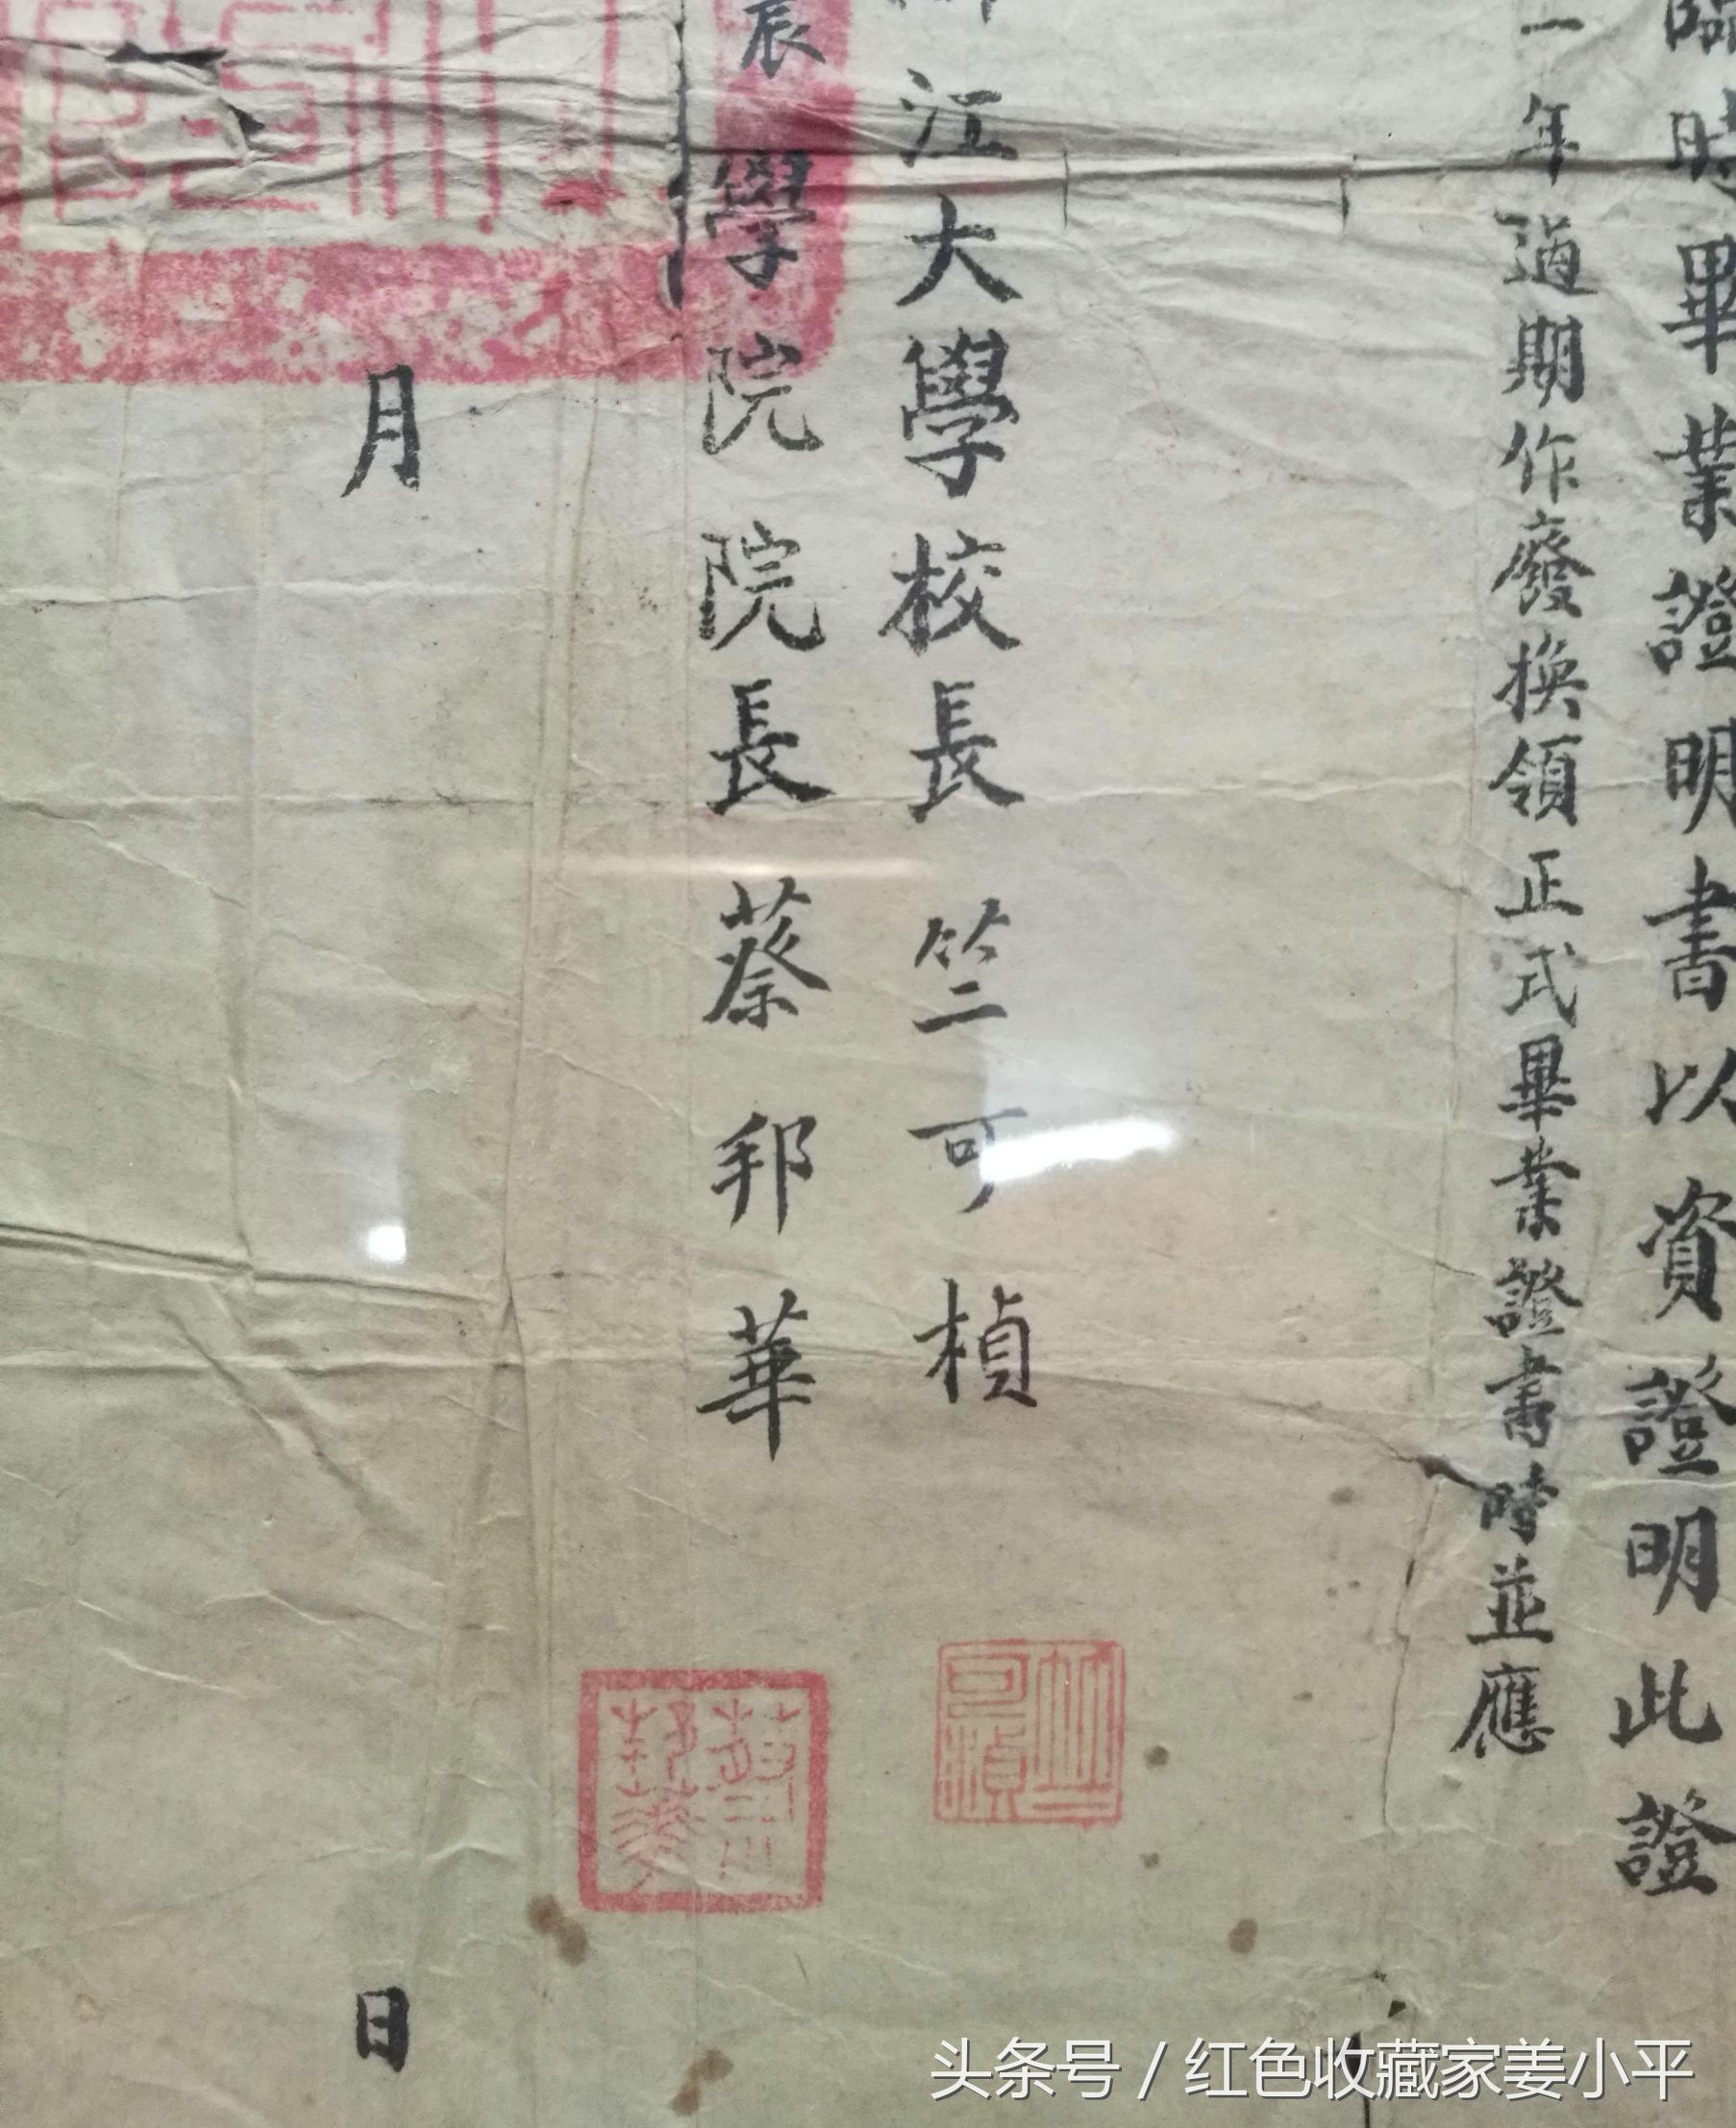 臨時畢業證明書以資證明此證
一年過期作廢換領正式畢業證書時並應
江大學校長 竺可楨
農學院院長 蔡邦華
月 日
头条号 / 红色收藏家姜小平